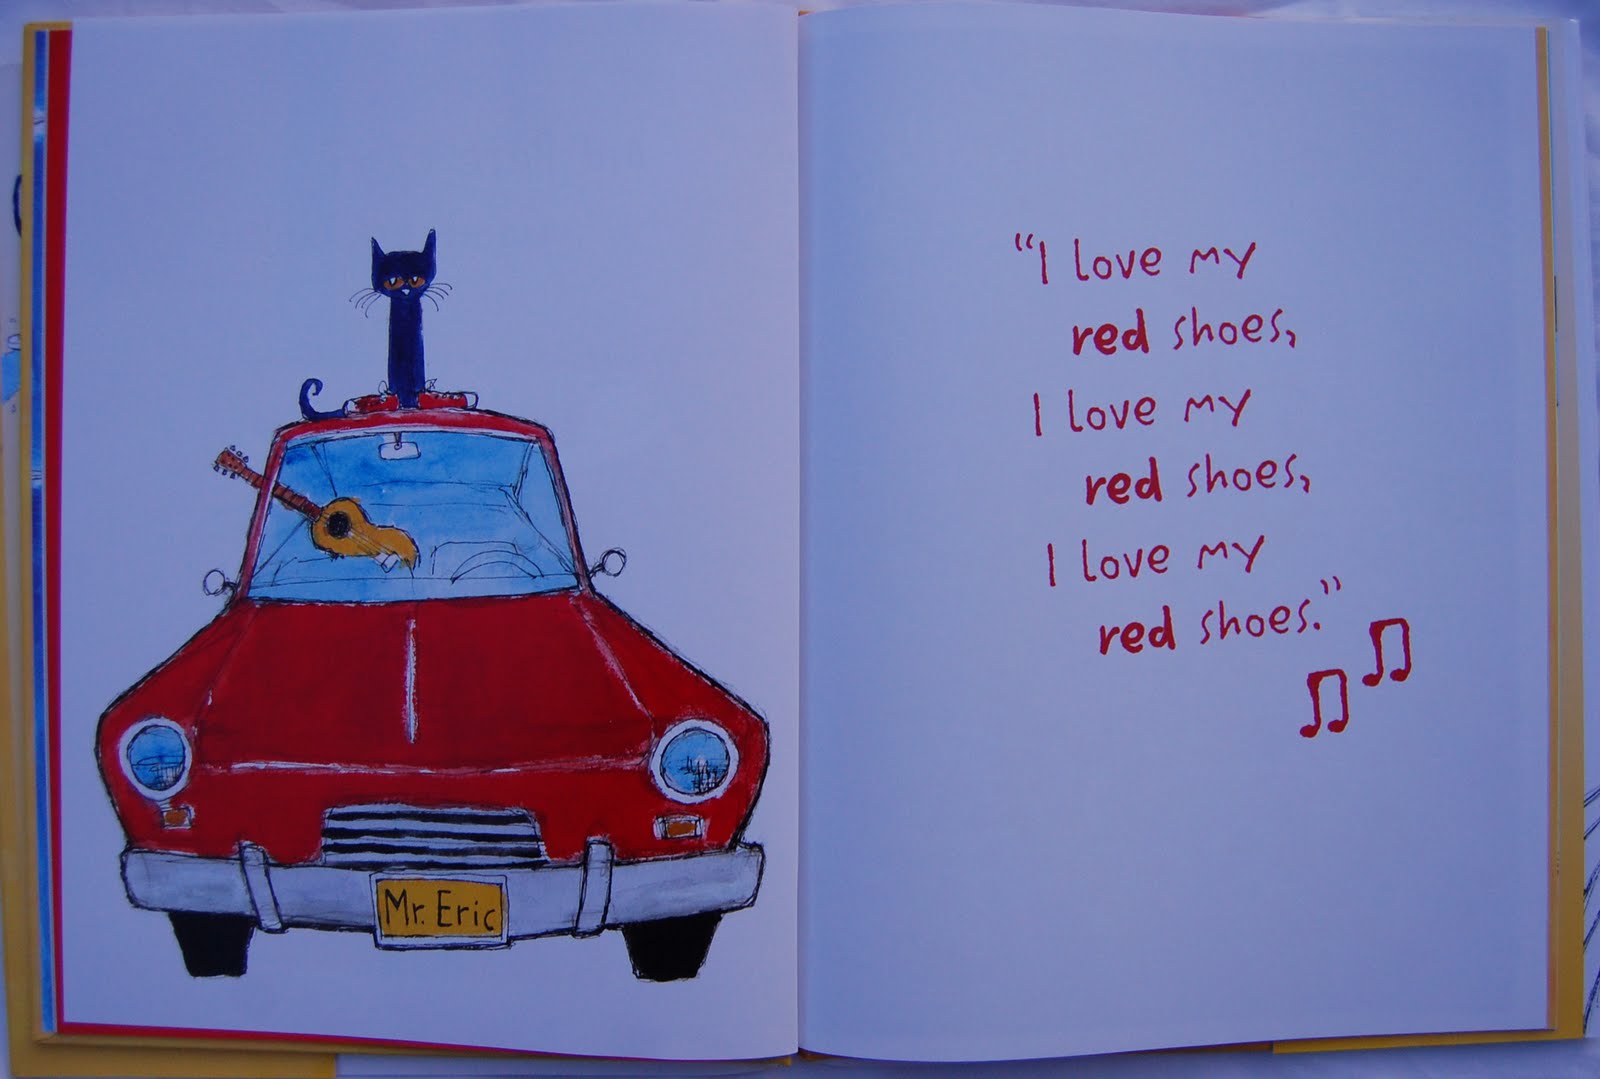 Mr. Eric
“I love my
red shoes,
I love my
red shoes,
I love my
red shoes.”